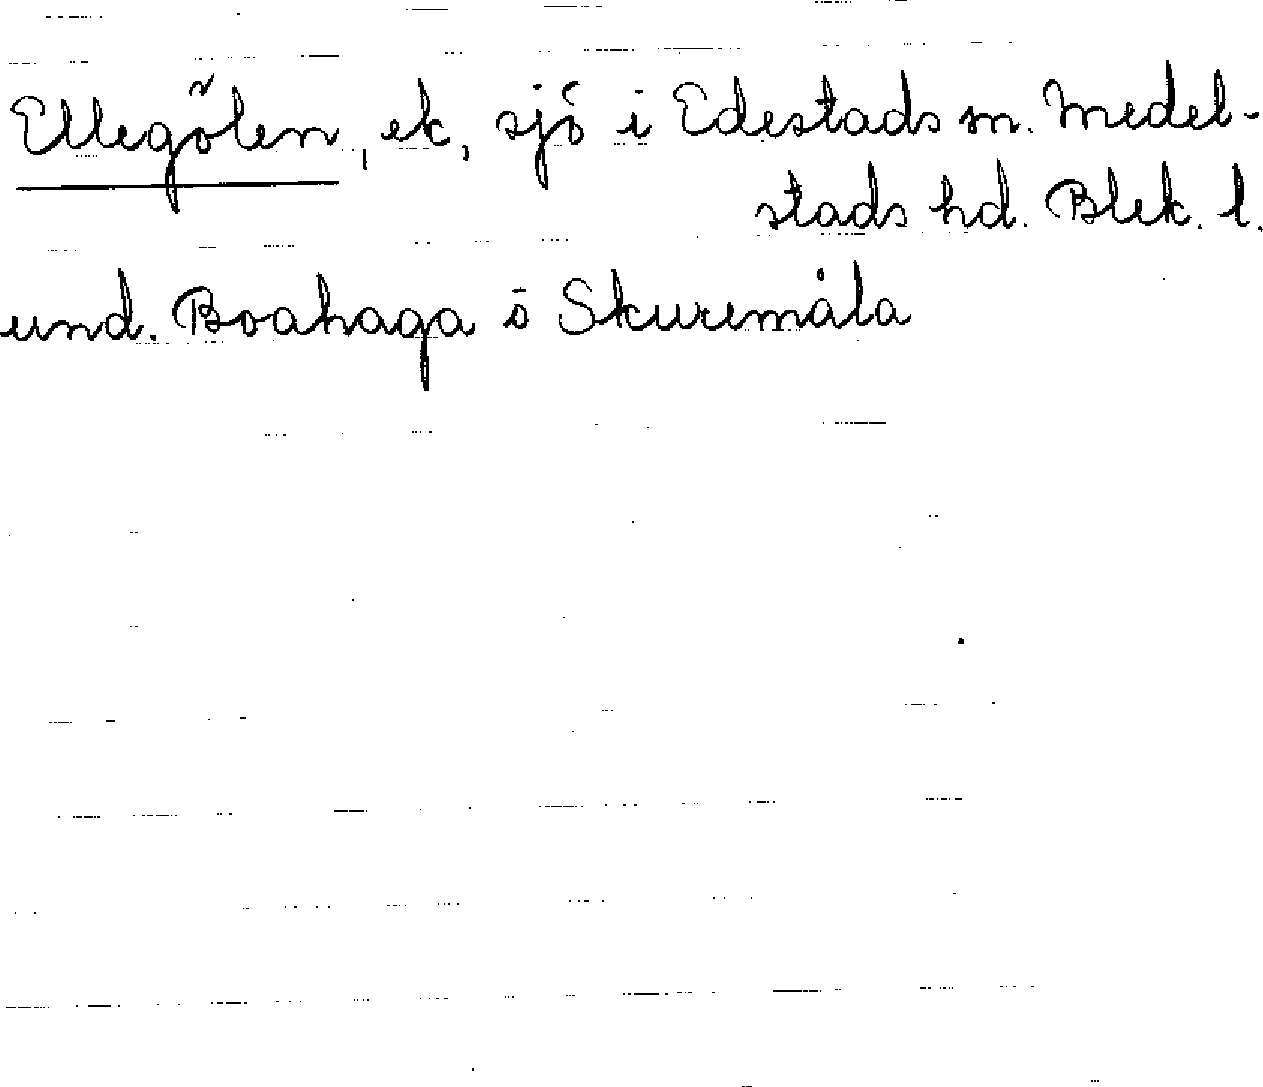 Ellegölen, ek, sjö i Edestads sn. Medel-
stads hd. Blek. l.
und. Boahaga ö Skuremåla